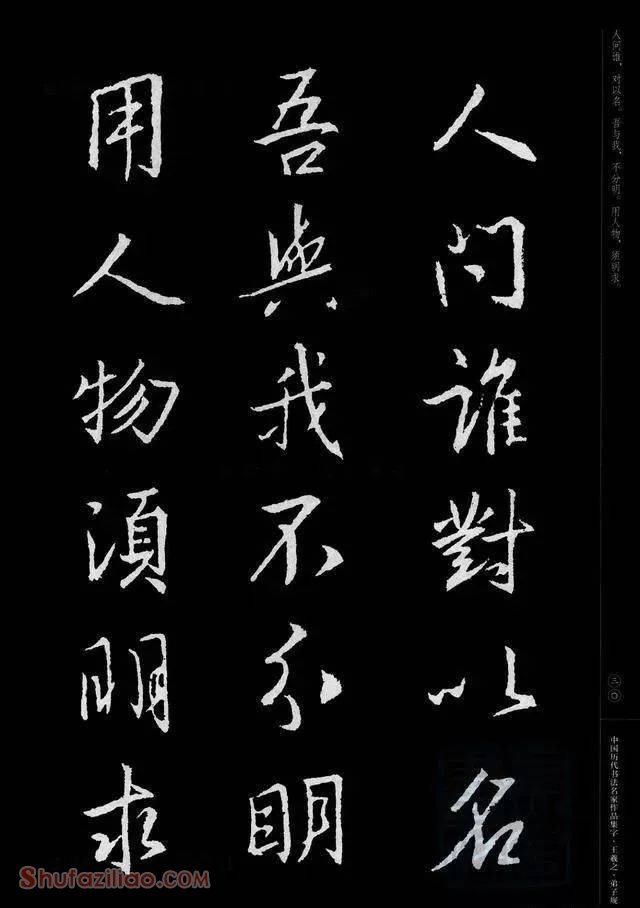 人問誰對以名
吾與我不分明
用人物須明求
人问谁，对以名。吾与我，不分明。用人物，须明求。
三〇
中国历代书法名家作品集字·王羲之·弟子规
Shufaziliao.com